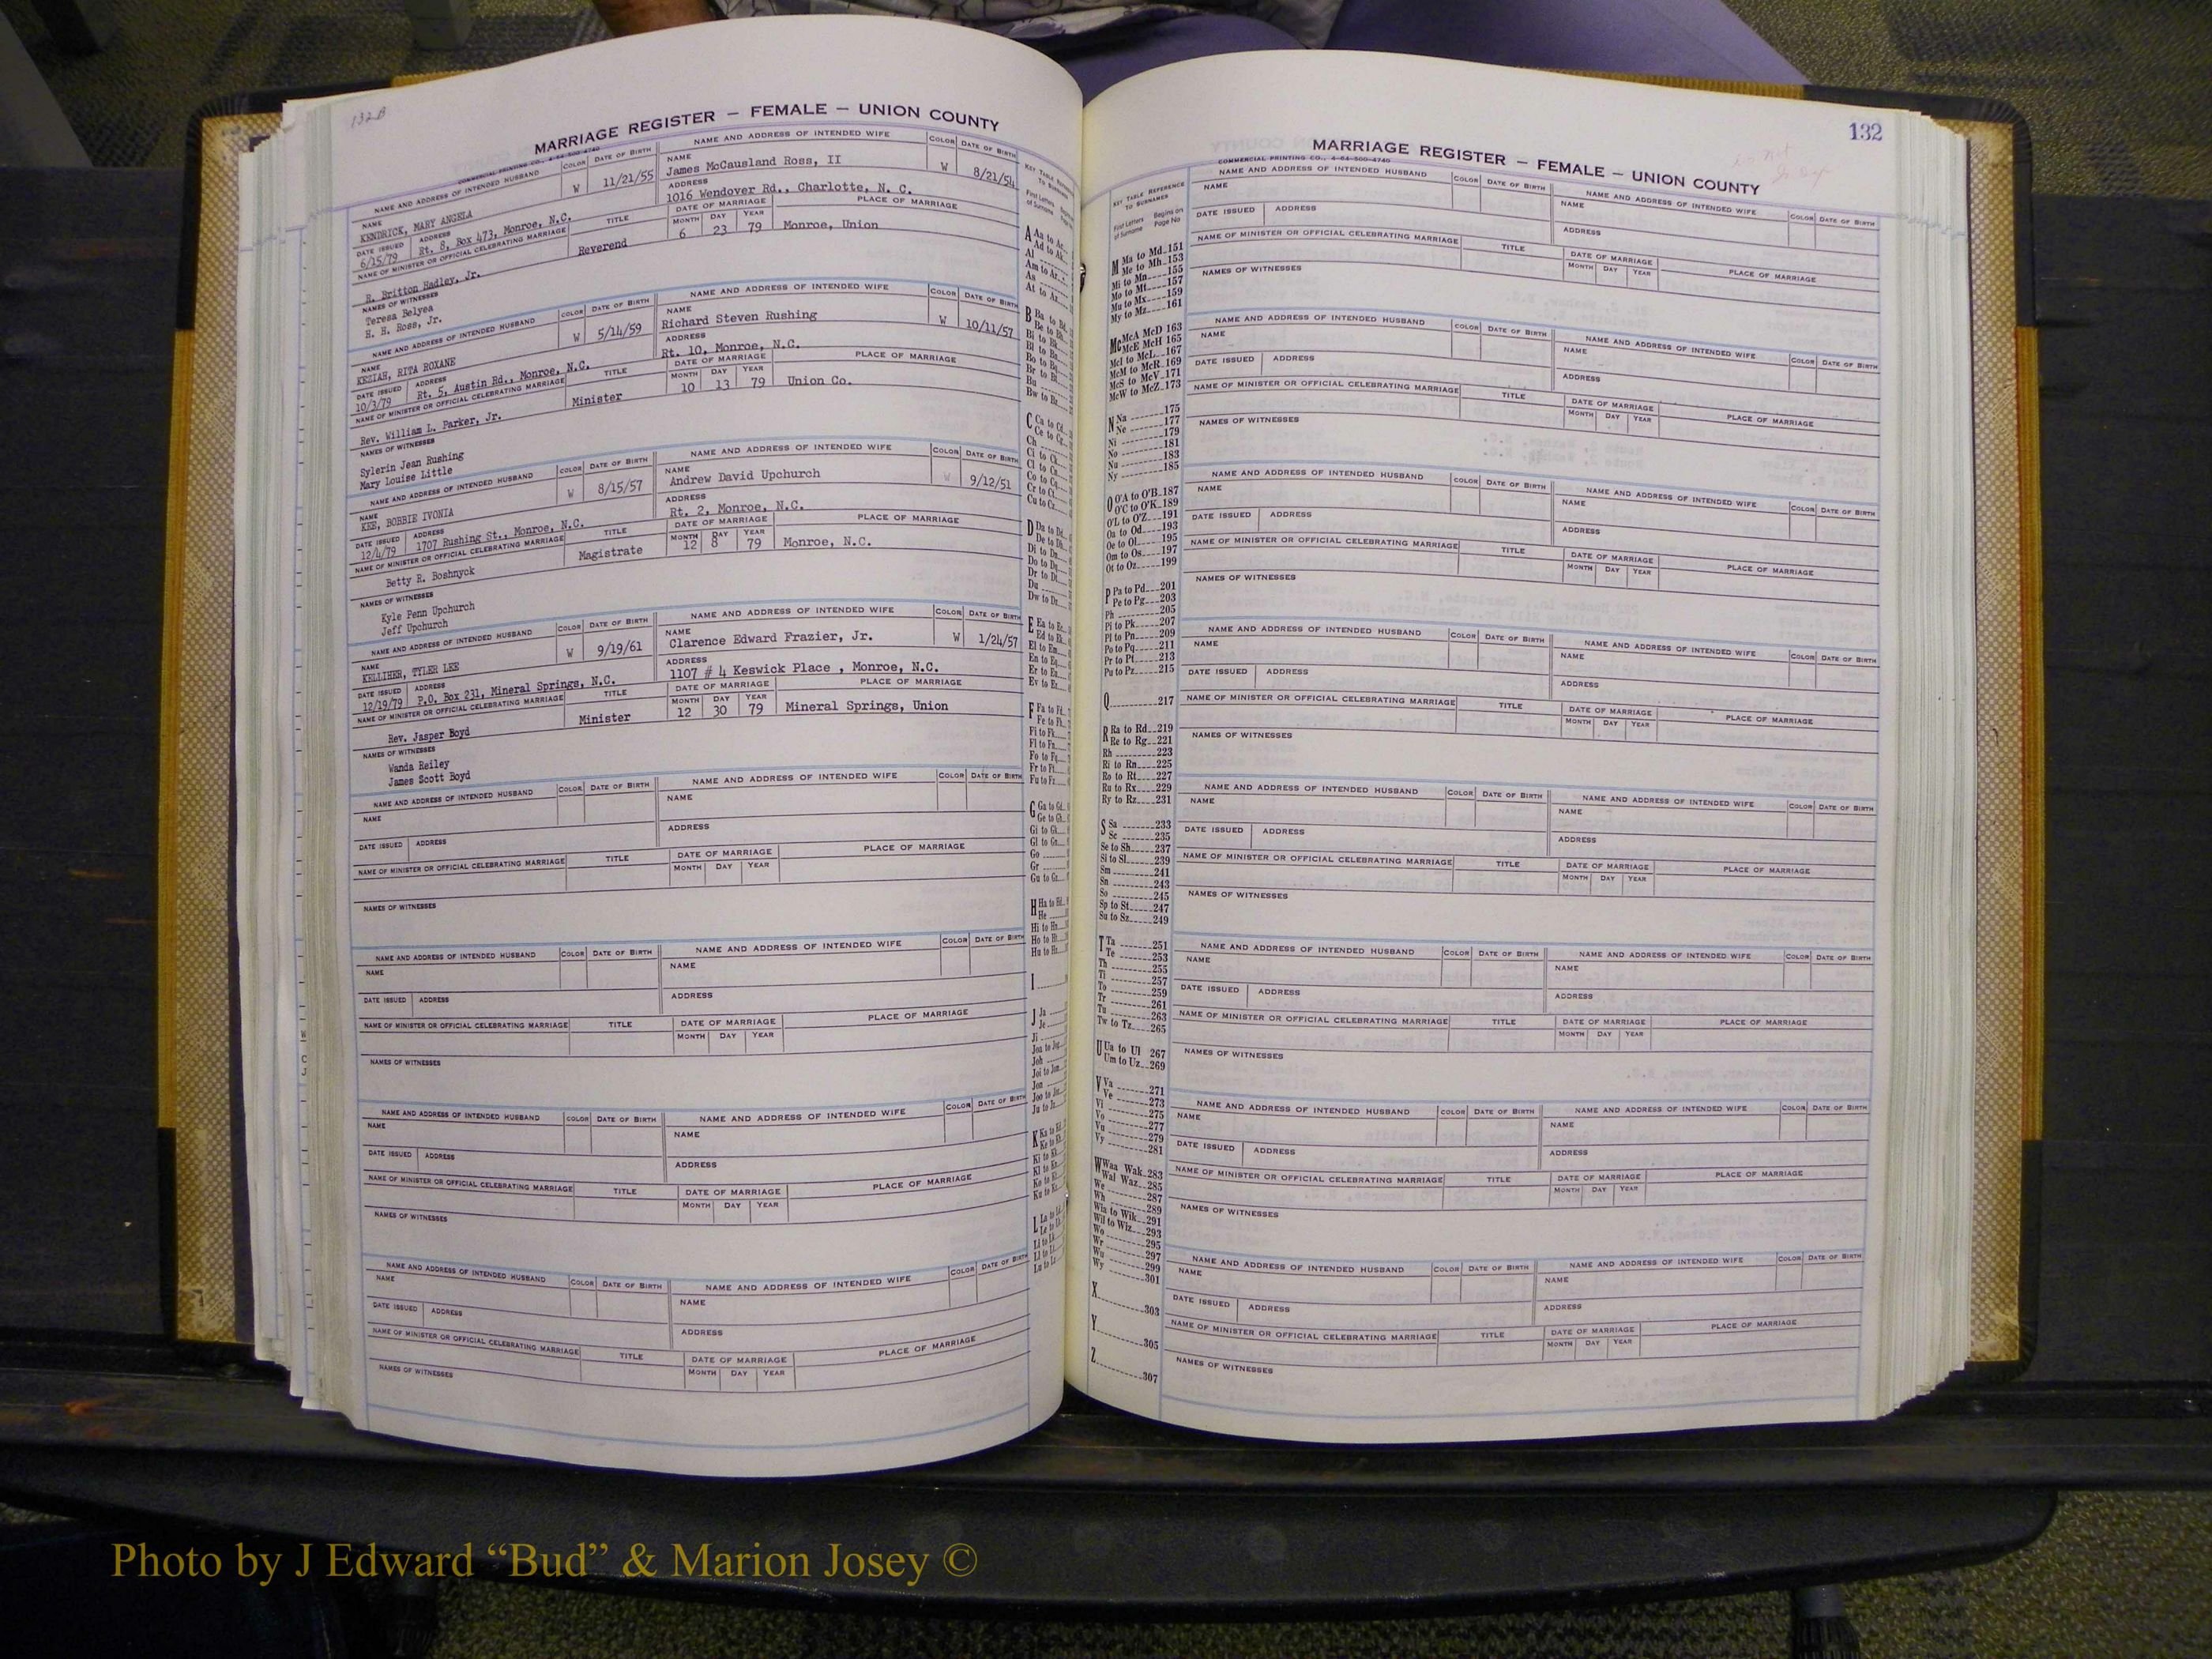 132B
MARRIAGE REGISTER — FEMALE — UNION COUNTY
COMMERCIAL PRINTING CO., 4-64-500-4740
NAME AND ADDRESS OF INTENDED HUSBAND COLOR DATE OF BIRTH NAME AND ADDRESS OF INTENDED WIFE COLOR DATE OF BIRTH
NAME KENDRICK, MARY ANGELA W 11/21/55 NAME James McCausland Ross, II W 8/21/54
DATE ISSUED 6/15/79 ADDRESS Rt. 8, Box 473, Monroe, N.C. ADDRESS 1016 Wendover Rd., Charlotte, N. C.
NAME OF MINISTER OR OFFICIAL CELEBRATING MARRIAGE TITLE DATE OF MARRIAGE PLACE OF MARRIAGE
MONTH DAY YEAR
R. Britton Hadley, Jr. Reverend 6 23 79 Monroe, Union
NAMES OF WITNESSES
Teresa Belyea
H. H. Ross, Jr.
NAME AND ADDRESS OF INTENDED HUSBAND COLOR DATE OF BIRTH NAME AND ADDRESS OF INTENDED WIFE COLOR DATE OF BIRTH
NAME KEZIAH, RITA ROXANE W 5/14/59 NAME Richard Steven Rushing W 10/11/57
DATE ISSUED 10/3/79 ADDRESS Rt. 5, Austin Rd., Monroe, N.C. ADDRESS Rt. 10, Monroe, N.C.
NAME OF MINISTER OR OFFICIAL CELEBRATING MARRIAGE TITLE DATE OF MARRIAGE PLACE OF MARRIAGE
MONTH DAY YEAR
Rev. William L. Parker, Jr. Minister 10 13 79 Union Co.
NAMES OF WITNESSES
Sylerin Jean Rushing
Mary Louise Little
NAME AND ADDRESS OF INTENDED HUSBAND COLOR DATE OF BIRTH NAME AND ADDRESS OF INTENDED WIFE COLOR DATE OF BIRTH
NAME KEE, BOBBIE IVONIA W 8/15/57 NAME Andrew David Upchurch W 9/12/51
DATE ISSUED 12/4/79 ADDRESS 1707 Rushing St., Monroe, N.C. ADDRESS Rt. 2, Monroe, N.C.
NAME OF MINISTER OR OFFICIAL CELEBRATING MARRIAGE TITLE DATE OF MARRIAGE PLACE OF MARRIAGE
MONTH DAY YEAR
Betty R. Boshnyck Magistrate 12 8 79 Monroe, N.C.
NAMES OF WITNESSES
Kyle Penn Upchurch
Jeff Upchurch
NAME AND ADDRESS OF INTENDED HUSBAND COLOR DATE OF BIRTH NAME AND ADDRESS OF INTENDED WIFE COLOR DATE OF BIRTH
NAME KELLIHER, TYLER LEE W 9/19/61 NAME Clarence Edward Frazier, Jr. W 1/24/57
DATE ISSUED 12/19/79 ADDRESS P.O. Box 231, Mineral Springs, N.C. ADDRESS 1107 # 4 Keswick Place , Monroe, N.C.
NAME OF MINISTER OR OFFICIAL CELEBRATING MARRIAGE TITLE DATE OF MARRIAGE PLACE OF MARRIAGE
MONTH DAY YEAR
Rev. Jasper Boyd Minister 12 30 79 Mineral Springs, Union
NAMES OF WITNESSES
Wanda Reiley
James Scott Boyd
NAME AND ADDRESS OF INTENDED HUSBAND COLOR DATE OF BIRTH NAME AND ADDRESS OF INTENDED WIFE COLOR DATE OF BIRTH
NAME NAME
DATE ISSUED ADDRESS ADDRESS
NAME OF MINISTER OR OFFICIAL CELEBRATING MARRIAGE TITLE DATE OF MARRIAGE PLACE OF MARRIAGE
MONTH DAY YEAR
NAMES OF WITNESSES
NAME AND ADDRESS OF INTENDED HUSBAND COLOR DATE OF BIRTH NAME AND ADDRESS OF INTENDED WIFE COLOR DATE OF BIRTH
NAME NAME
DATE ISSUED ADDRESS ADDRESS
NAME OF MINISTER OR OFFICIAL CELEBRATING MARRIAGE TITLE DATE OF MARRIAGE PLACE OF MARRIAGE
MONTH DAY YEAR
NAMES OF WITNESSES
NAME AND ADDRESS OF INTENDED HUSBAND COLOR DATE OF BIRTH NAME AND ADDRESS OF INTENDED WIFE COLOR DATE OF BIRTH
NAME NAME
DATE ISSUED ADDRESS ADDRESS
NAME OF MINISTER OR OFFICIAL CELEBRATING MARRIAGE TITLE DATE OF MARRIAGE PLACE OF MARRIAGE
MONTH DAY YEAR
NAMES OF WITNESSES
NAME AND ADDRESS OF INTENDED HUSBAND COLOR DATE OF BIRTH NAME AND ADDRESS OF INTENDED WIFE COLOR DATE OF BIRTH
NAME NAME
DATE ISSUED ADDRESS ADDRESS
NAME OF MINISTER OR OFFICIAL CELEBRATING MARRIAGE TITLE DATE OF MARRIAGE PLACE OF MARRIAGE
MONTH DAY YEAR
NAMES OF WITNESSES
132
MARRIAGE REGISTER — FEMALE — UNION COUNTY
COMMERCIAL PRINTING CO., 4-64-500-4740
KEY TABLE REFERENCE
TO SURNAMES
First Letters of Surname Begins on Page No
M Ma to Md 151
Me to Mh 153
Mi to Mn 155
Mo to Mt 157
Mu to Mx 159
My to Mz 161
Mc McA McD 163
McE McH 165
McI to McL 167
McM to McR 169
McS to McV 171
McW to McZ 173
N Na 175
Ne 177
Ni 179
No 181
Nu 183
Ny 185
O O'A to O'B 187
O'C to O'K 189
O'L to O'Z 191
Oa to Od 193
Oe to Ol 195
Om to Os 197
Ot to Oz 199
P Pa to Pd 201
Pe to Pg 203
Ph 205
Pi to Pk 207
Pl to Pn 209
Po to Pq 211
Pr to Pt 213
Pu to Pz 215
Q 217
R Ra to Rd 219
Re to Rg 221
Rh 223
Ri to Rn 225
Ro to Rt 227
Ru to Rx 229
Ry to Rz 231
S Sa 233
Sc 235
Se to Sh 237
Si to Sl 239
Sm 241
Sn 243
So 245
Sp to St 247
Su to Sz 249
T Ta 251
Te 253
Th 255
Ti 257
To 259
Tr 261
Tu 263
Tw to Tz 265
U Ua to Ul 267
Um to Uz 269
V Va 271
Ve 273
Vi 275
Vo 277
Vu 279
Vy 281
W Waa Wak 283
Wal Waz 285
We 287
Wh 289
Wia to Wik 291
Wil to Wiz 293
Wo 295
Wr 297
Wu 299
Wy 301
X 303
Y 305
Z 307
NAME AND ADDRESS OF INTENDED HUSBAND COLOR DATE OF BIRTH NAME AND ADDRESS OF INTENDED WIFE COLOR DATE OF BIRTH
NAME NAME
DATE ISSUED ADDRESS ADDRESS
NAME OF MINISTER OR OFFICIAL CELEBRATING MARRIAGE TITLE DATE OF MARRIAGE PLACE OF MARRIAGE
MONTH DAY YEAR
NAMES OF WITNESSES
NAME AND ADDRESS OF INTENDED HUSBAND COLOR DATE OF BIRTH NAME AND ADDRESS OF INTENDED WIFE COLOR DATE OF BIRTH
NAME NAME
DATE ISSUED ADDRESS ADDRESS
NAME OF MINISTER OR OFFICIAL CELEBRATING MARRIAGE TITLE DATE OF MARRIAGE PLACE OF MARRIAGE
MONTH DAY YEAR
NAMES OF WITNESSES
NAME AND ADDRESS OF INTENDED HUSBAND COLOR DATE OF BIRTH NAME AND ADDRESS OF INTENDED WIFE COLOR DATE OF BIRTH
NAME NAME
DATE ISSUED ADDRESS ADDRESS
NAME OF MINISTER OR OFFICIAL CELEBRATING MARRIAGE TITLE DATE OF MARRIAGE PLACE OF MARRIAGE
MONTH DAY YEAR
NAMES OF WITNESSES
NAME AND ADDRESS OF INTENDED HUSBAND COLOR DATE OF BIRTH NAME AND ADDRESS OF INTENDED WIFE COLOR DATE OF BIRTH
NAME NAME
DATE ISSUED ADDRESS ADDRESS
NAME OF MINISTER OR OFFICIAL CELEBRATING MARRIAGE TITLE DATE OF MARRIAGE PLACE OF MARRIAGE
MONTH DAY YEAR
NAMES OF WITNESSES
NAME AND ADDRESS OF INTENDED HUSBAND COLOR DATE OF BIRTH NAME AND ADDRESS OF INTENDED WIFE COLOR DATE OF BIRTH
NAME NAME
DATE ISSUED ADDRESS ADDRESS
NAME OF MINISTER OR OFFICIAL CELEBRATING MARRIAGE TITLE DATE OF MARRIAGE PLACE OF MARRIAGE
MONTH DAY YEAR
NAMES OF WITNESSES
NAME AND ADDRESS OF INTENDED HUSBAND COLOR DATE OF BIRTH NAME AND ADDRESS OF INTENDED WIFE COLOR DATE OF BIRTH
NAME NAME
DATE ISSUED ADDRESS ADDRESS
NAME OF MINISTER OR OFFICIAL CELEBRATING MARRIAGE TITLE DATE OF MARRIAGE PLACE OF MARRIAGE
MONTH DAY YEAR
NAMES OF WITNESSES
NAME AND ADDRESS OF INTENDED HUSBAND COLOR DATE OF BIRTH NAME AND ADDRESS OF INTENDED WIFE COLOR DATE OF BIRTH
NAME NAME
DATE ISSUED ADDRESS ADDRESS
NAME OF MINISTER OR OFFICIAL CELEBRATING MARRIAGE TITLE DATE OF MARRIAGE PLACE OF MARRIAGE
MONTH DAY YEAR
NAMES OF WITNESSES
NAME AND ADDRESS OF INTENDED HUSBAND COLOR DATE OF BIRTH NAME AND ADDRESS OF INTENDED WIFE COLOR DATE OF BIRTH
NAME NAME
DATE ISSUED ADDRESS ADDRESS
NAME OF MINISTER OR OFFICIAL CELEBRATING MARRIAGE TITLE DATE OF MARRIAGE PLACE OF MARRIAGE
MONTH DAY YEAR
NAMES OF WITNESSES
Photo by J Edward “Bud” & Marion Josey ©